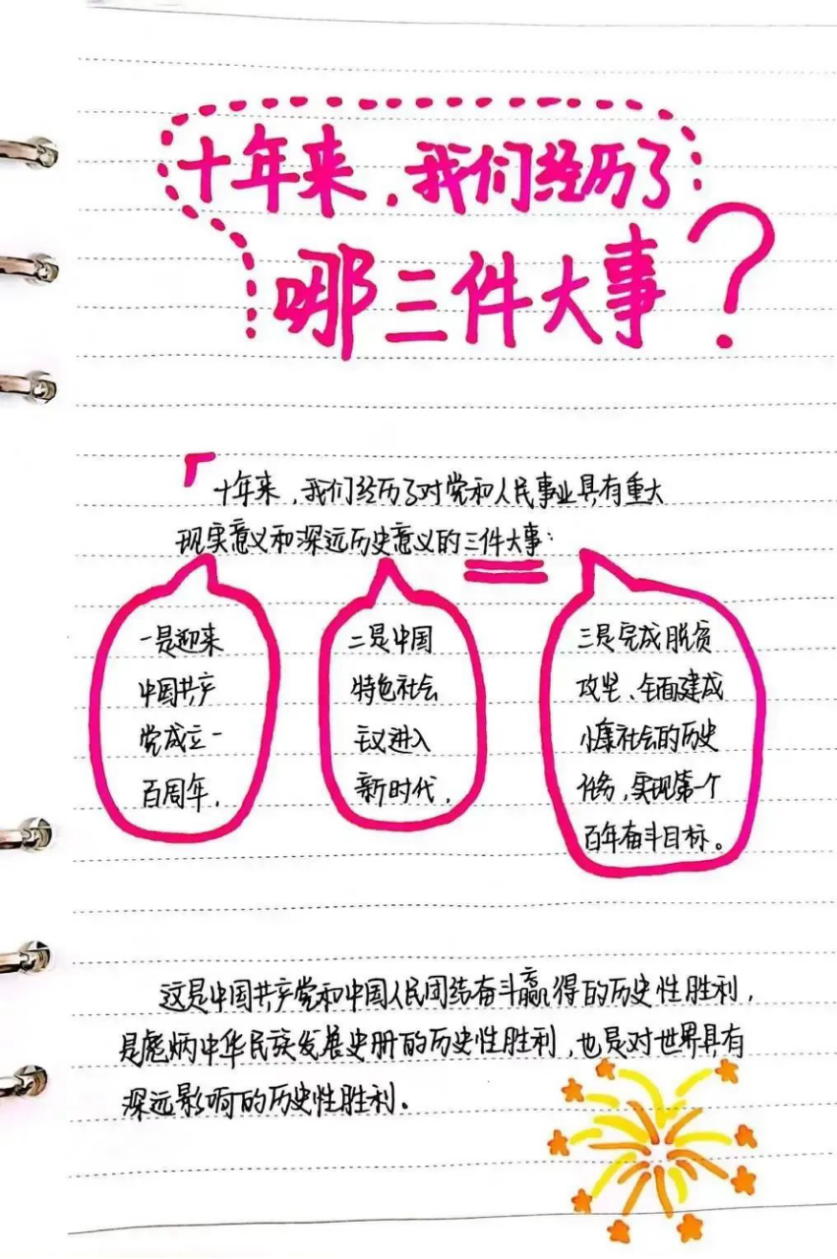 十年来，我们经历了
哪三件大事？
十年来，我们经历了对党和人民事业具有重大
现实意义和深远历史意义的三件大事：
一是迎来
中国共产
党成立一
百周年，
二是中国
特色社会
主义进入
新时代，
三是完成脱贫
攻坚、全面建成
小康社会的历史
任务，实现第一个
百年奋斗目标。
这是中国共产党和中国人民团结奋斗赢得的历史性胜利，
是彪炳中华民族发展史册的历史性胜利，也是对世界具有
深远影响的历史性胜利。